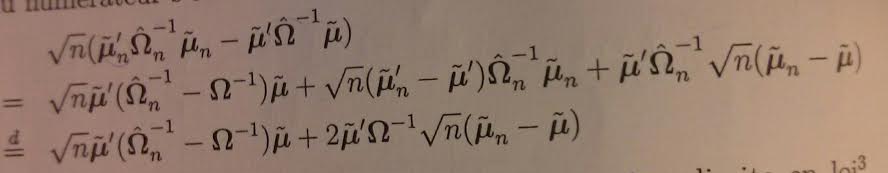 u numérateur
√n(μ̃′ₙΩ̂ₙ⁻¹μ̃ₙ − μ̃′Ω̂⁻¹μ̃)
= √nμ̃′(Ω̂ₙ⁻¹ − Ω⁻¹)μ̃ + √n(μ̃′ₙ − μ̃′)Ω̂ₙ⁻¹μ̃ₙ + μ̃′Ω̂ₙ⁻¹√n(μ̃ₙ − μ̃)
d= √nμ̃′(Ω̂ₙ⁻¹ − Ω⁻¹)μ̃ + 2μ̃′Ω⁻¹√n(μ̃ₙ − μ̃)
en loi³